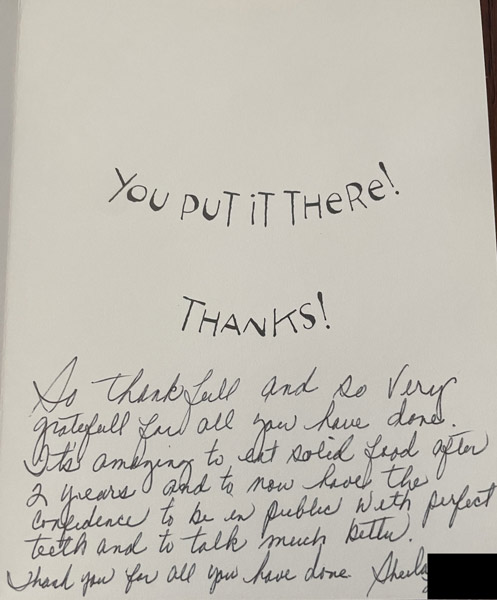 YOU PUT IT THERE!
THANKS!
So thankfull and so very
gratefull for all you have done.
It's amazing to eat solid food after
2 years and to now have the
confidence to be in public with perfect
teeth and to talk much better.
Thank you for all you have done Sheila